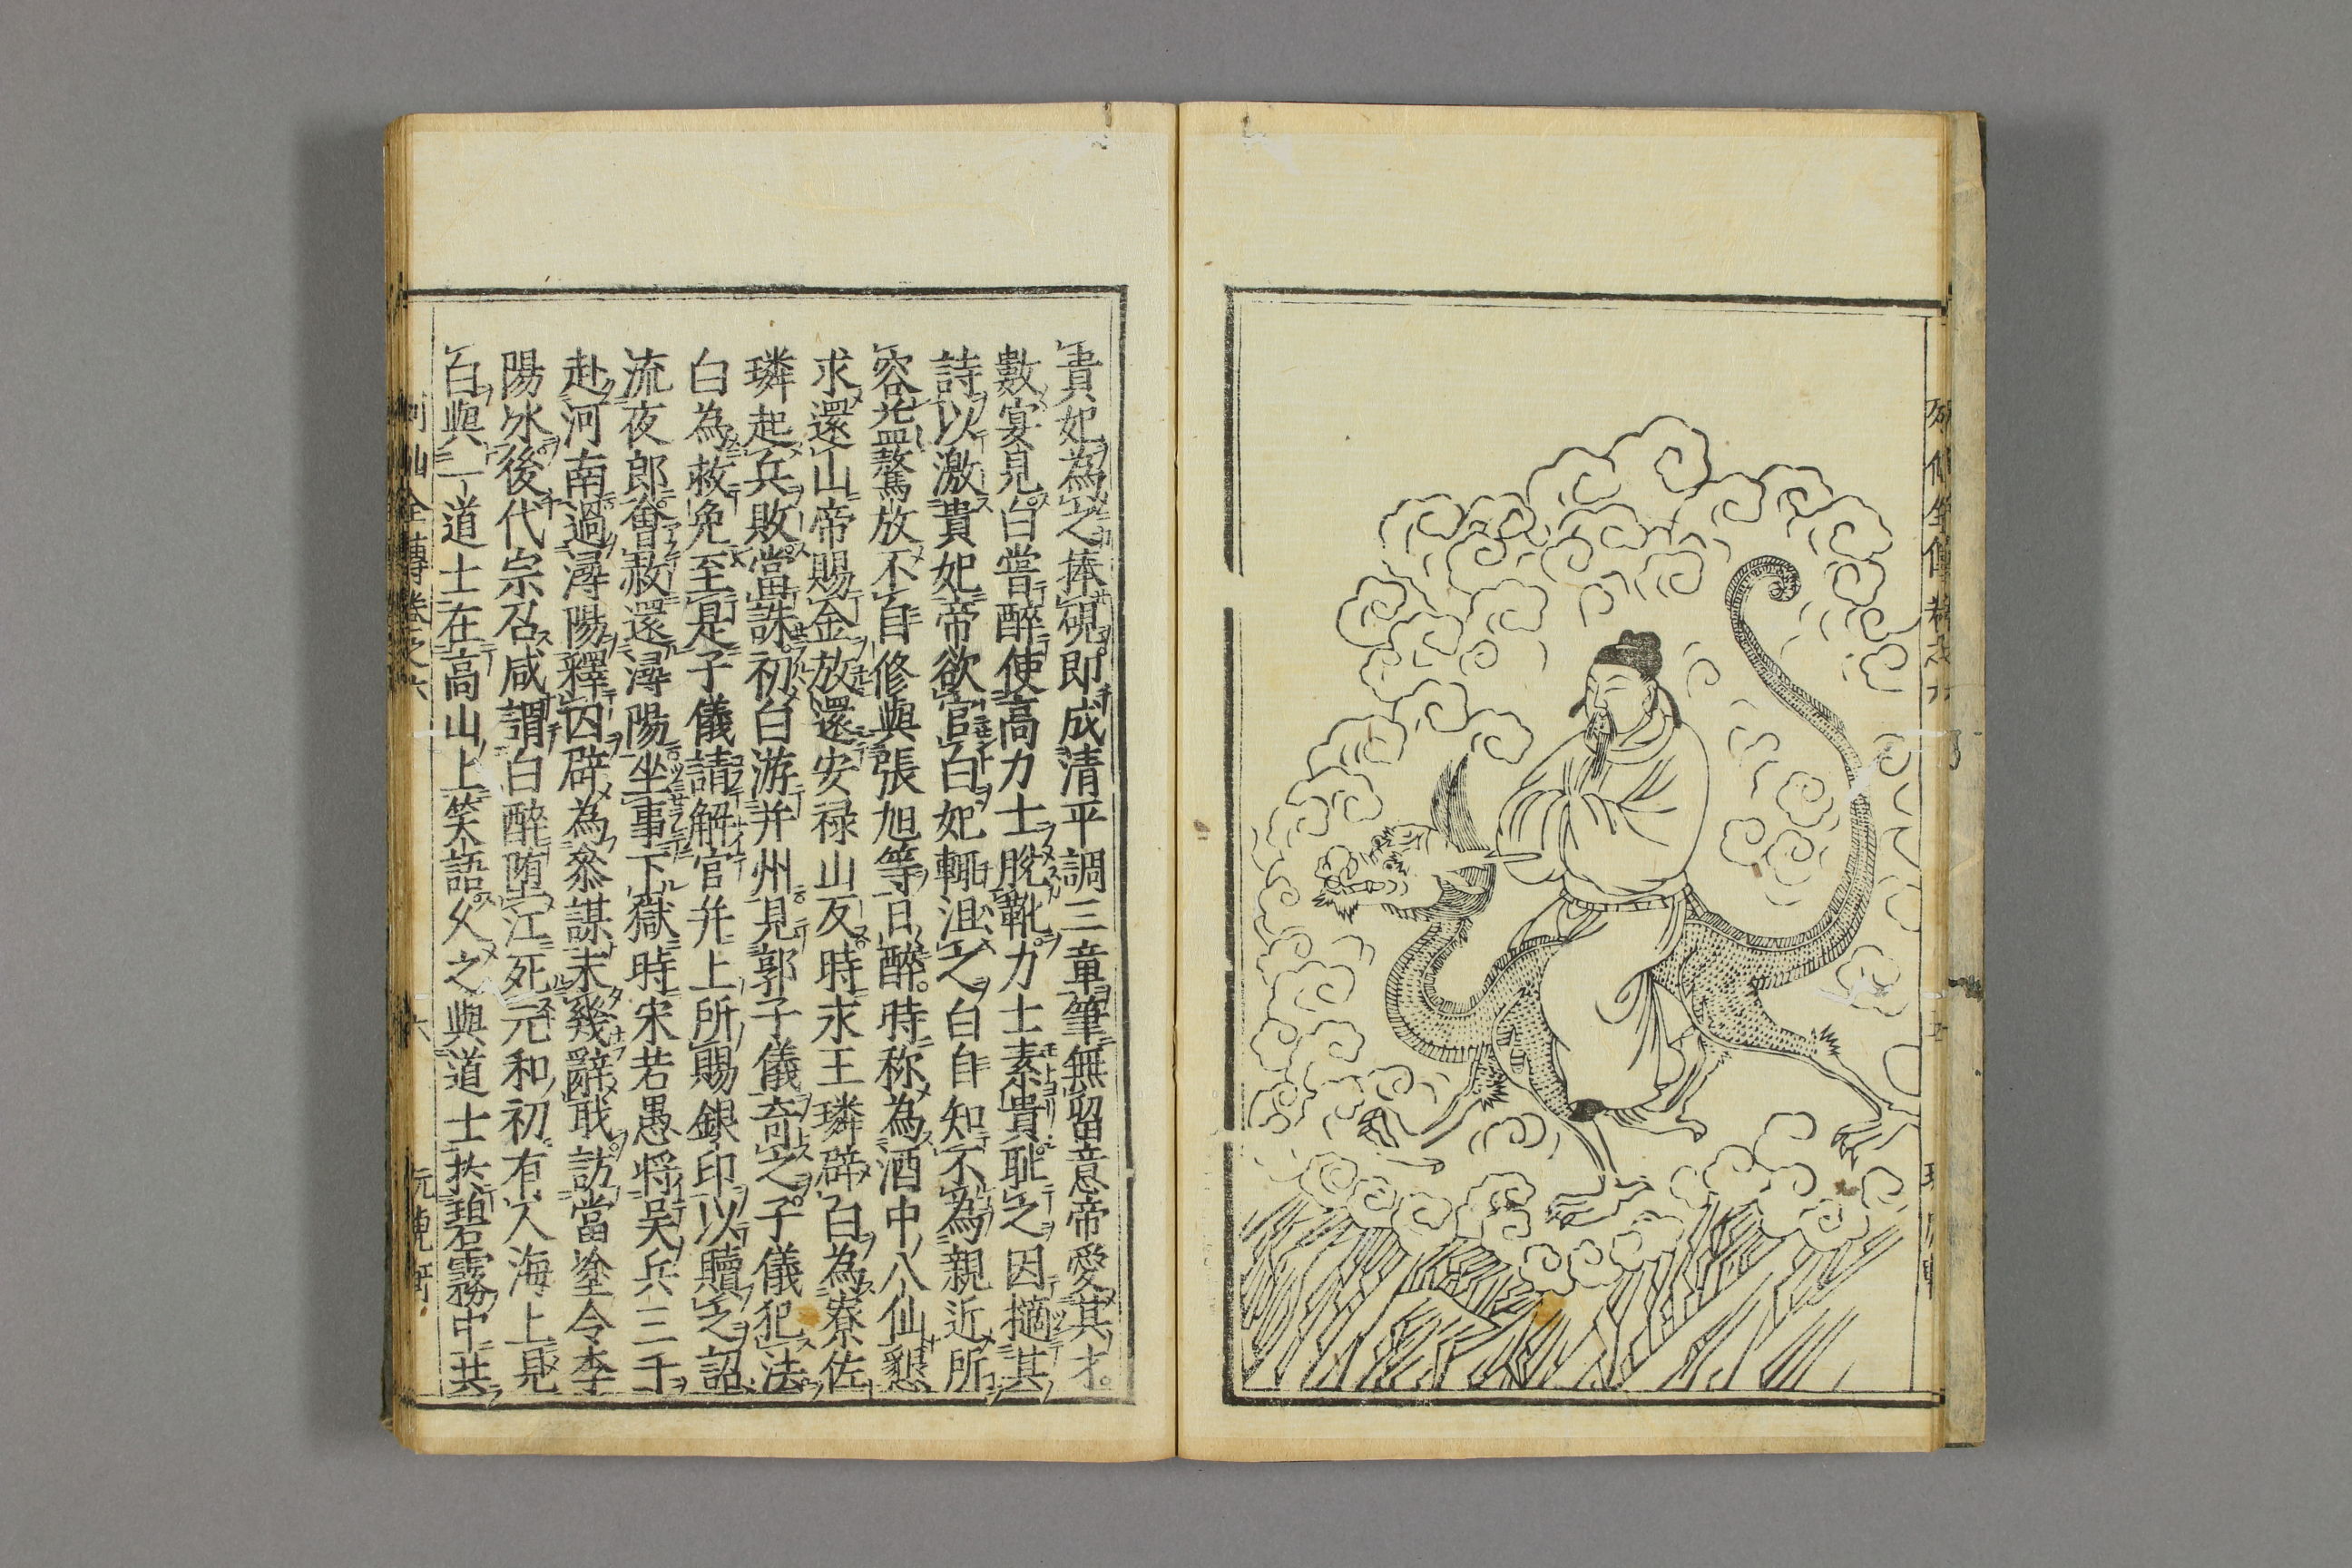 貴妃為之捧硯即成清平調三章筆無留意帝愛其才
數宴見白嘗醉使高力士脫靴力士素貴耻之因擿其
詩以激貴妃帝欲官白妃輙沮之白自知不為親近所
容益驁放不自修與張旭等日醉時称為酒中八仙懇
求還山帝賜金放還安禄山反時永王璘辟白為寮佐
璘起兵敗當誅初白游并州見郭子儀奇之子儀犯法
白為救免至是子儀請解官并上所賜銀印以贖之詔
流夜郎會赦還潯陽坐事下獄時宋若愚将吳兵三千
赴河南過潯陽釋囚辟為叅謀未幾辭職訪當塗令李
陽冰後代宗召咸謂白醉堕江死元和初有人海上見
白與一道士在高山上笑語久之與道士扵碧霧中共
列仙全傳卷之六
六